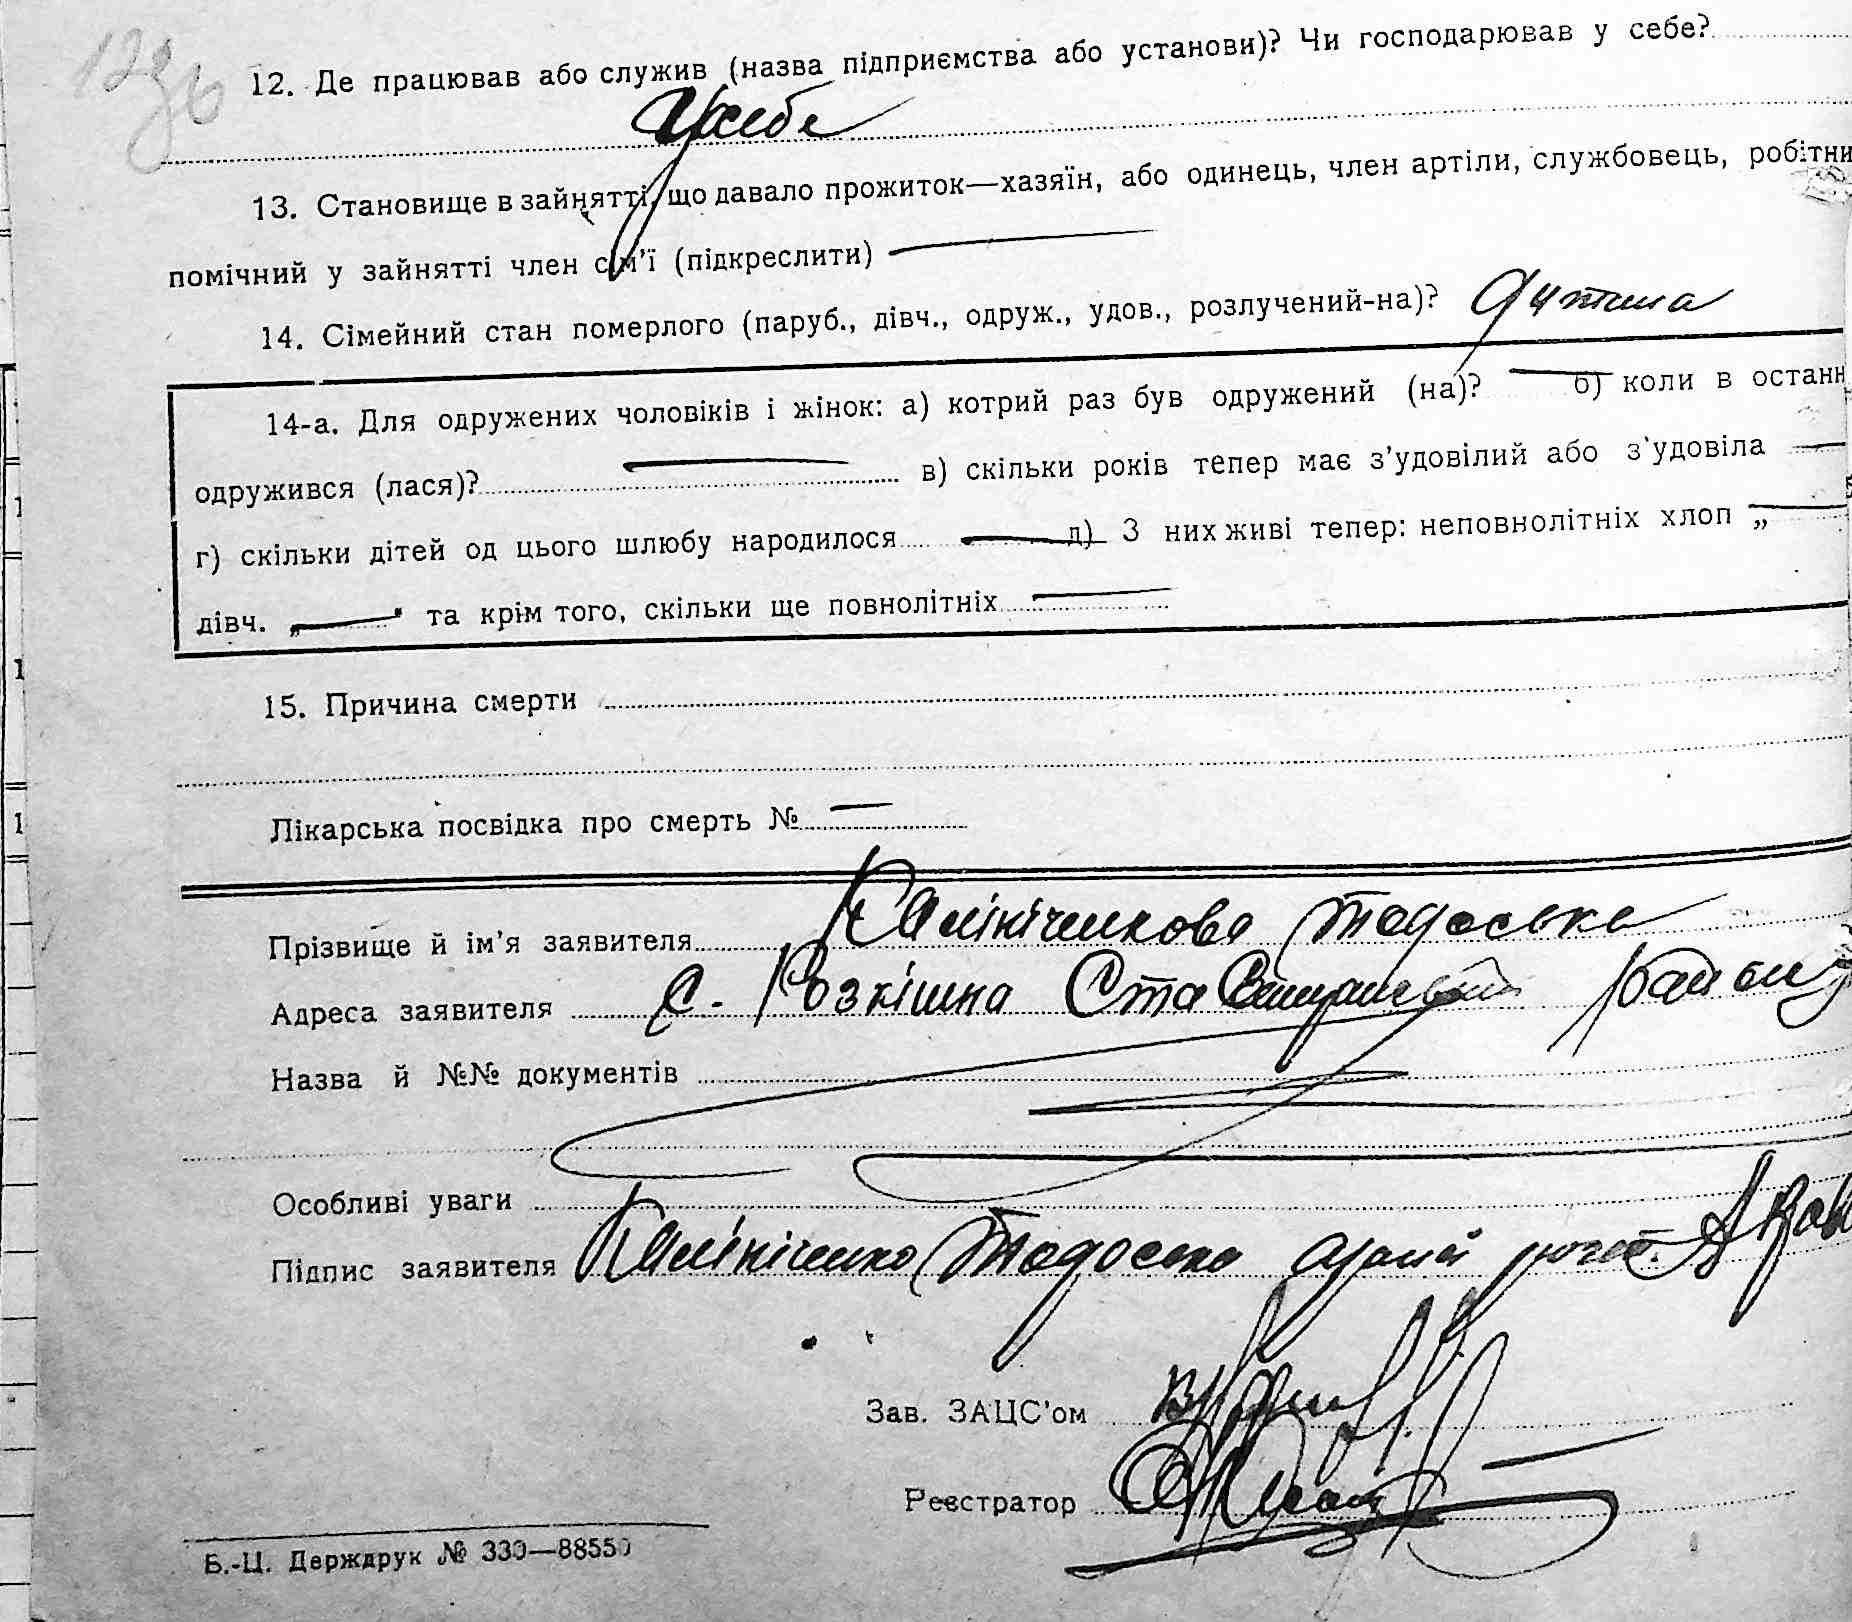 12. Де працював або служив (назва підприємства або установи)? Чи господарював у себе?
У себе
13. Становище в зайнятті, що давало прожиток—хазяїн, або одинець, член артіли, службовець, робітни
помічний у зайнятті член сім'ї (підкреслити) —
14. Сімейний стан померлого (паруб., дівч., одруж., удов., розлучений-на)? Дитина
14-а. Для одружених чоловіків і жінок: а) котрий раз був одружений (на)? — б) коли в останн
одружився (лася)? — в) скільки років тепер має з'удовілий або з'удовіла —
г) скільки дітей од цього шлюбу народилося — д) З них живі тепер: неповнолітніх хлоп „ —
дівч. „ — " та крім того, скільки ще повнолітніх —
15. Причина смерти
Лікарська посвідка про смерть № —
Прізвище й ім'я заявителя Калініченкова Тодоська
Адреса заявителя с. Розкішна Ставищанський району
Назва й №№ документів
Особливі уваги
Підпис заявителя Калініченко Тодоська
Зав. ЗАЦС'ом
Реєстратор
Б.-Ц. Держдрук № 330—88550